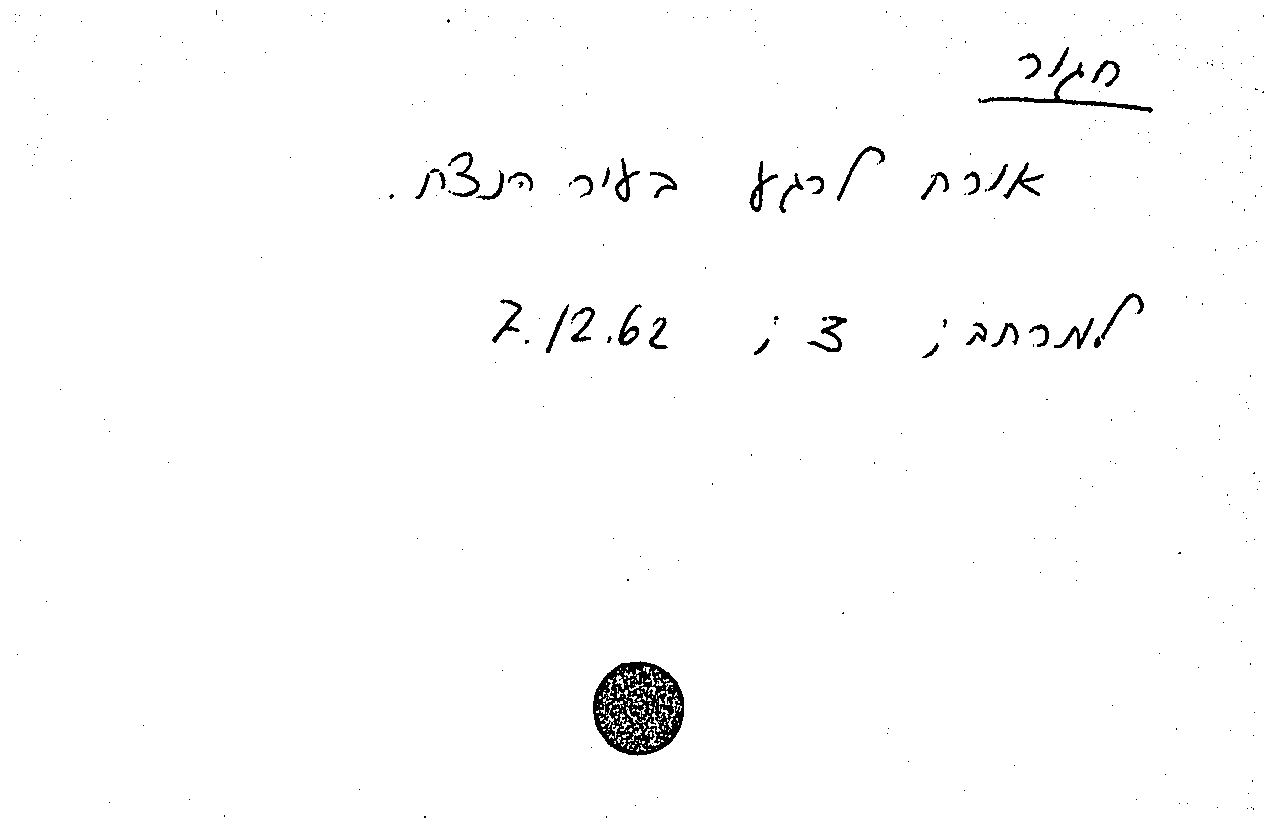 חגור
אורח לרגע בעיר הנצח.
למרחב; 3; 7.12.62